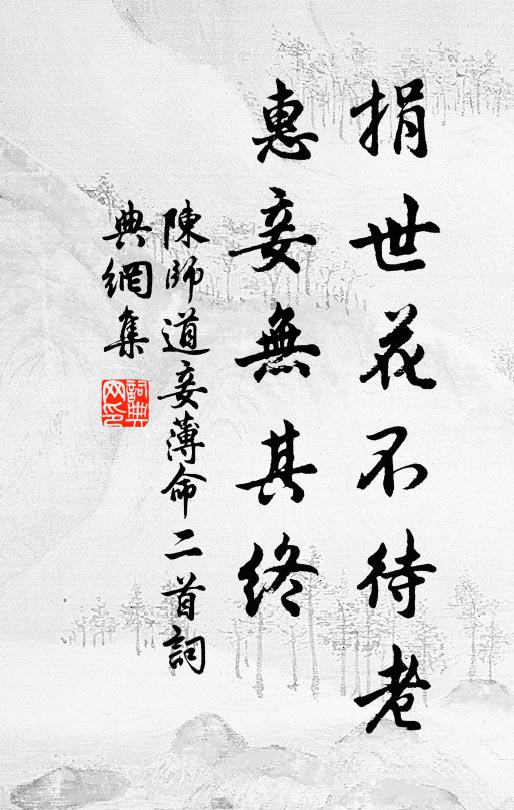 捐世花不待老
惠妾無其終
陳師道妾薄命二首詞
典網集
詞典
网印